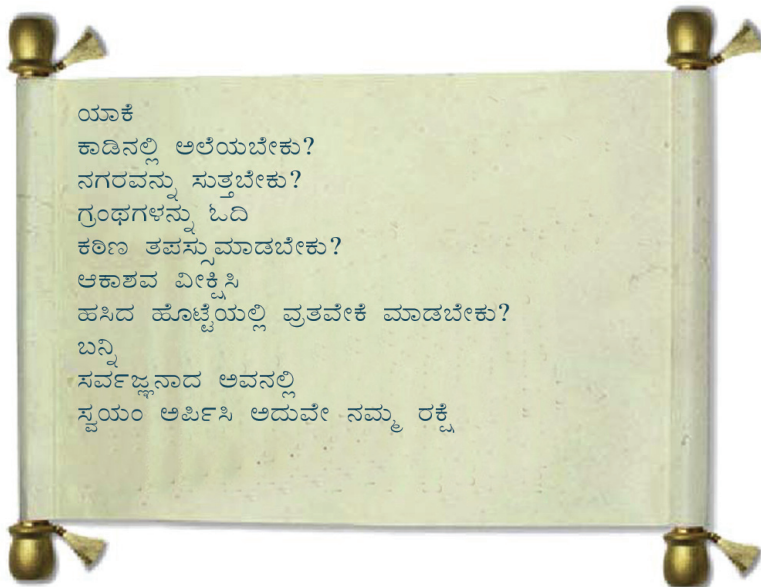 ಯಾಕೆ
ಕಾಡಿನಲ್ಲಿ ಅಲೆಯಬೇಕು?
ನಗರವನ್ನು ಸುತ್ತಬೇಕು?
ಗ್ರಂಥಗಳನ್ನು ಓದಿ
ಕಠಿಣ ತಪಸ್ಸುಮಾಡಬೇಕು?
ಆಕಾಶವ ವೀಕ್ಷಿಸಿ
ಹಸಿದ ಹೊಟ್ಟೆಯಲ್ಲಿ ವ್ರತವೇಕೆ ಮಾಡಬೇಕು?
ಬನ್ನಿ
ಸರ್ವಜ್ಞನಾದ ಅವನಲ್ಲಿ
ಸ್ವಯಂ ಅರ್ಪಿಸಿ ಅದುವೇ ನಮ್ಮ ರಕ್ಷೆ